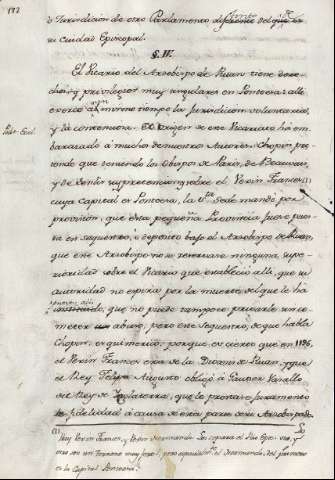 192
ò Jurisdicion de otro Parlamento distinto del que de
su Ciudad Episcopal.
§. IV.
El Vicario del Arzobispo de Ruan tiene dere
chos, y privilegios muy singulares en Pontoesa: alli
exerce à un mismo tiempo la Jurisdicion voluntaria,
y la contenciosa. El origen de este Vicariato ha em
barazado à muchos de nuestros Autores. Chopin pre
tende que teniendo los Obispos de Paris, de Beauvais,
y de Senlis sus pretensiones sobre el Vexin Francés (1)
cuya capital es Pontoesa, la Sta. Sede mandò por
provision, que esta pequeña Provincia fuese pues
ta en sequestro, ò deposito baxo el Arzobispo de Ruan,
que este Arzobispo no se reservase ninguna supe
rioridad sobre el Vicario que estableciò alli, que su
autoridad no espira por la muerte del que le ha
puesto alli
que no puede tampoco privarle sin co
meter un abuso; pero este Sequestro, de que habla
Chopin, es quimerico: porque es cierto que en 1196.
el Vexin Francés era de la Diocesis de Ruan, y que
el Rey Felipe Augusto obligò à Gautier Vasallo
del Rey de Inglaterra, que le prestase juramento
de fidelidad à causa de esta parte de su Arzobispado.
(1) Hay Vexin Francés, y Vexin Normando